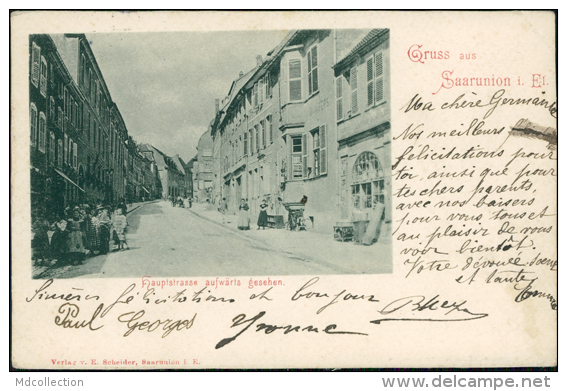 Gruss aus
Saarunion i. El.
Ma chère Germaine
Nos meilleurs
félicitations pour
toi, ainsi que pour
tes chers parents,
avec nos baisers
pour vous tous et
au plaisir de vous
voir bientôt.
Votre dévouée soeur
et tante
Hauptstrasse aufwärts gesehen.
Sincères félicitations et bonjour
Paul Georges Yvonne
Verlag v. E. Scheider, Saarunion i. E.
Mdcollection
www.delcampe.net